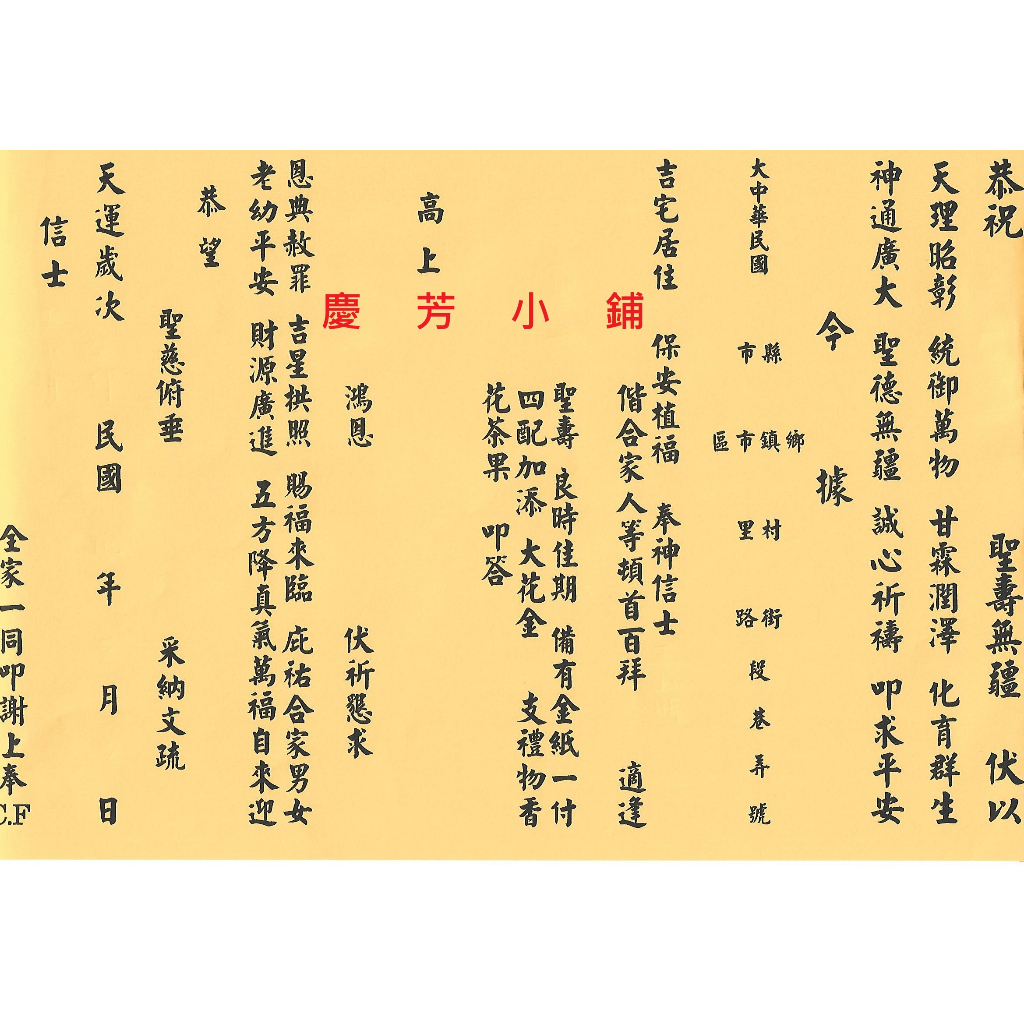 恭祝 聖壽無疆 伏以
天理昭彰 統御萬物 甘霖潤澤 化育群生
神通廣大 聖德無疆 誠心祈禱 叩求平安
今 據
大中華民國 縣市 鄉鎮市區 村里 街路 段 巷 弄 號
吉宅居住 保安植福 奉神信士
偕合家人等頓首百拜 適逢
聖壽 良時佳期 備有金紙一付
四配加添 大花金 支禮物香
花茶果 叩答
高上
鴻恩 伏祈懇求
恩典赦罪 吉星拱照 賜福來臨 庇祐合家男女
老幼平安 財源廣進 五方降真氣萬福自來迎
恭望
聖慈俯垂 采納文疏
天運歲次 民國 年 月 日
信士
全家一同叩謝上奉
C.F
慶芳小鋪